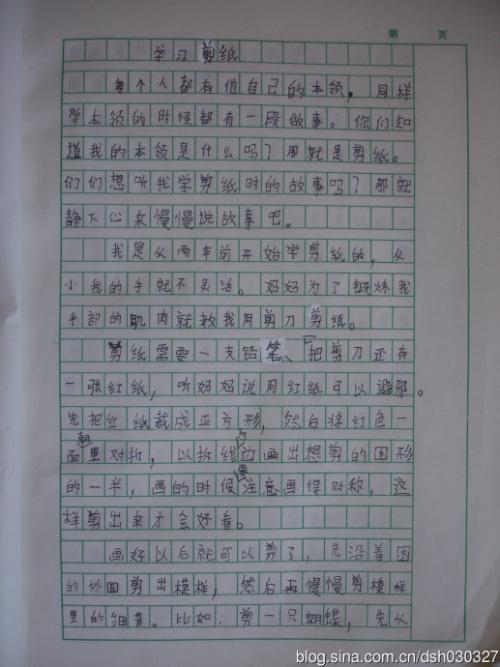 第 页
学习剪纸
每个人都有他自己的本领。同样
学本领的时候都有一段故事。你们知
道我的本领是什么吗？那就是剪纸。
们们想听我学剪纸时的故事吗？那就
静下心来慢慢说故事吧。
我是从两年前开始学剪纸的，从
小我的手就不灵活。妈妈为了锻炼我
手部的肌肉就教我用剪刀剪纸。
剪纸需要一支铅笔、一把剪刀还有
一张红纸，听妈妈说用红纸可以避邪。
先把红纸裁成正方形，然后将红色一
面朝里对折，以折线为边画出想剪的图形
的一半，画的时候要注意画得对称，这
样剪出来才会好看。
画好以后就可以剪了，先沿着图
的外围剪出模样，然后再慢慢剪模样
里的细节。比如：剪一只蝴蝶，先从
blog.sina.com.cn/dsh030327